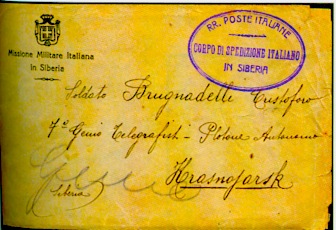 Missione Militare Italiana
in Siberia
RR. POSTE ITALIANE
CORPO DI SPEDIZIONE ITALIANO
IN SIBERIA
Soldato Brugnadelli Custoforo
7º Genio Telegrafisti - Plotone Autonomo
Krasnojarsk
Siberia